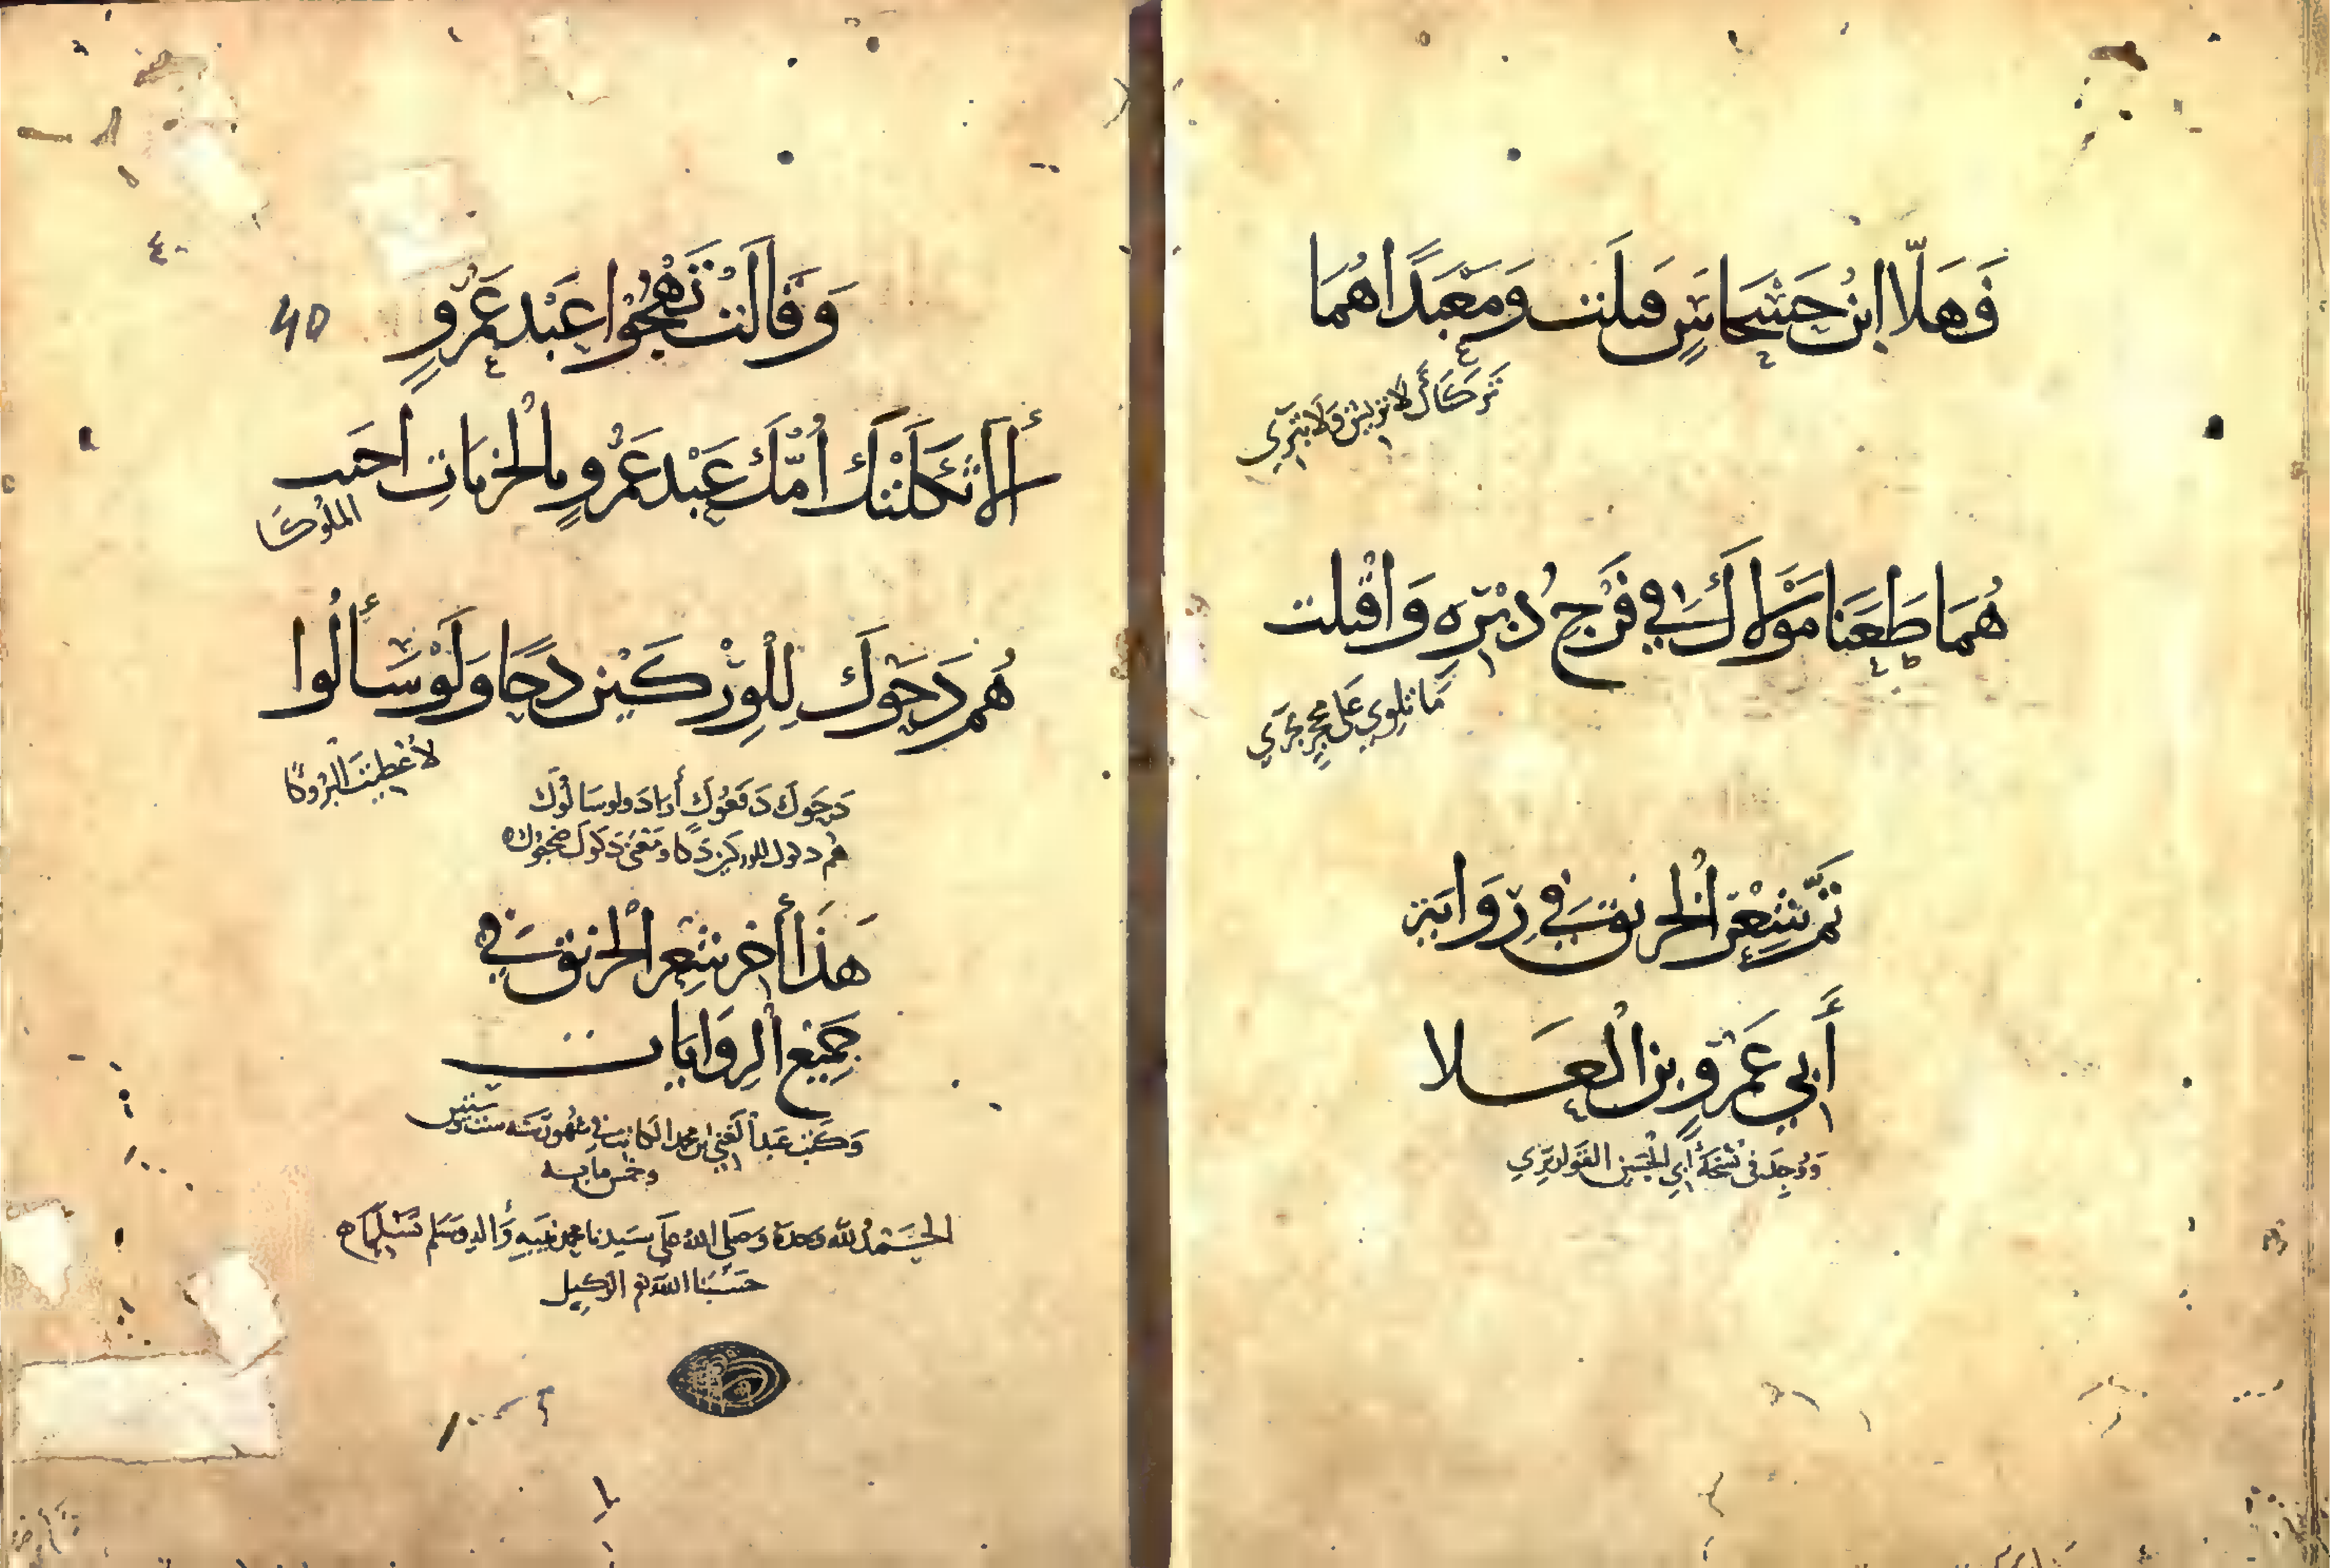 فَهَلَّا ابْنَ حَسْحَاسٍ قَتَلْتَ وَمَعْبَدًا هُمَا
تَرَكَاكَ لَا تَرِيشُ وَلَا تَبْرِي
هُمَا طَعَنَا مَوْلَاكَ فِي فَرْجِ دُبْرِهِ وَأَقْبَلْتَ
مَا تَلْوِي عَلَى مُحْجَرٍ تَجْرِي
تَمَّ شِعْرُ الْخِرْنِقِ فِي رِوَايَةِ
أَبِي عَمْرِو بْنِ الْعَلَا
وَوُجِدَ فِي نُسْخَةِ أَبِي الْحُسَيْنِ
٤٠
وَقَالَتْ تَهْجُوا عَبْدَ عَمْرٍو
40
أَلَا ثَكِلَتْكَ أُمُّكَ عَبْدَ عَمْرٍو أَبِالْخَرَبَاتِ آخَيْتَ
الْمُلُوكَا
هُمُ دَحَّوْكَ لِلْوِرْكَيْنِ دَحًّا وَلَوْ سَأَلُوا
لَأَعْطَيْتَ الْبُرُوكَا
دَحَّوْكَ دَفَعُوكَ أَرَادَ وَلَوْ سَأَلُوكَ
هُمُ دكوك للوركين دَكًّا وَمَعْنَى دَكُّوكَ
هَذَا آخِرُ شِعْرِ الْخِرْنِقِ فِي
جَمِيعِ الرِّوَايَاتِ
وَكَتَبَ عَبْدُ الْغَنِي ابن محمد الكاتب فِي شُهُورِ سَنَةِ
وخمس مايه
الْحَمْدُ لِلَّهِ وَحْدَهُ وَصَلَّى اللهُ عَلَى سَيِّدِنَا مُحَمَّدٍ نَبِيِّهِ وَآلِهِ وَسَلَّمَ تَسْلِيمًا
حَسْبُنَا اللَّهُ وَنِعْمَ الْوَكِيلُ